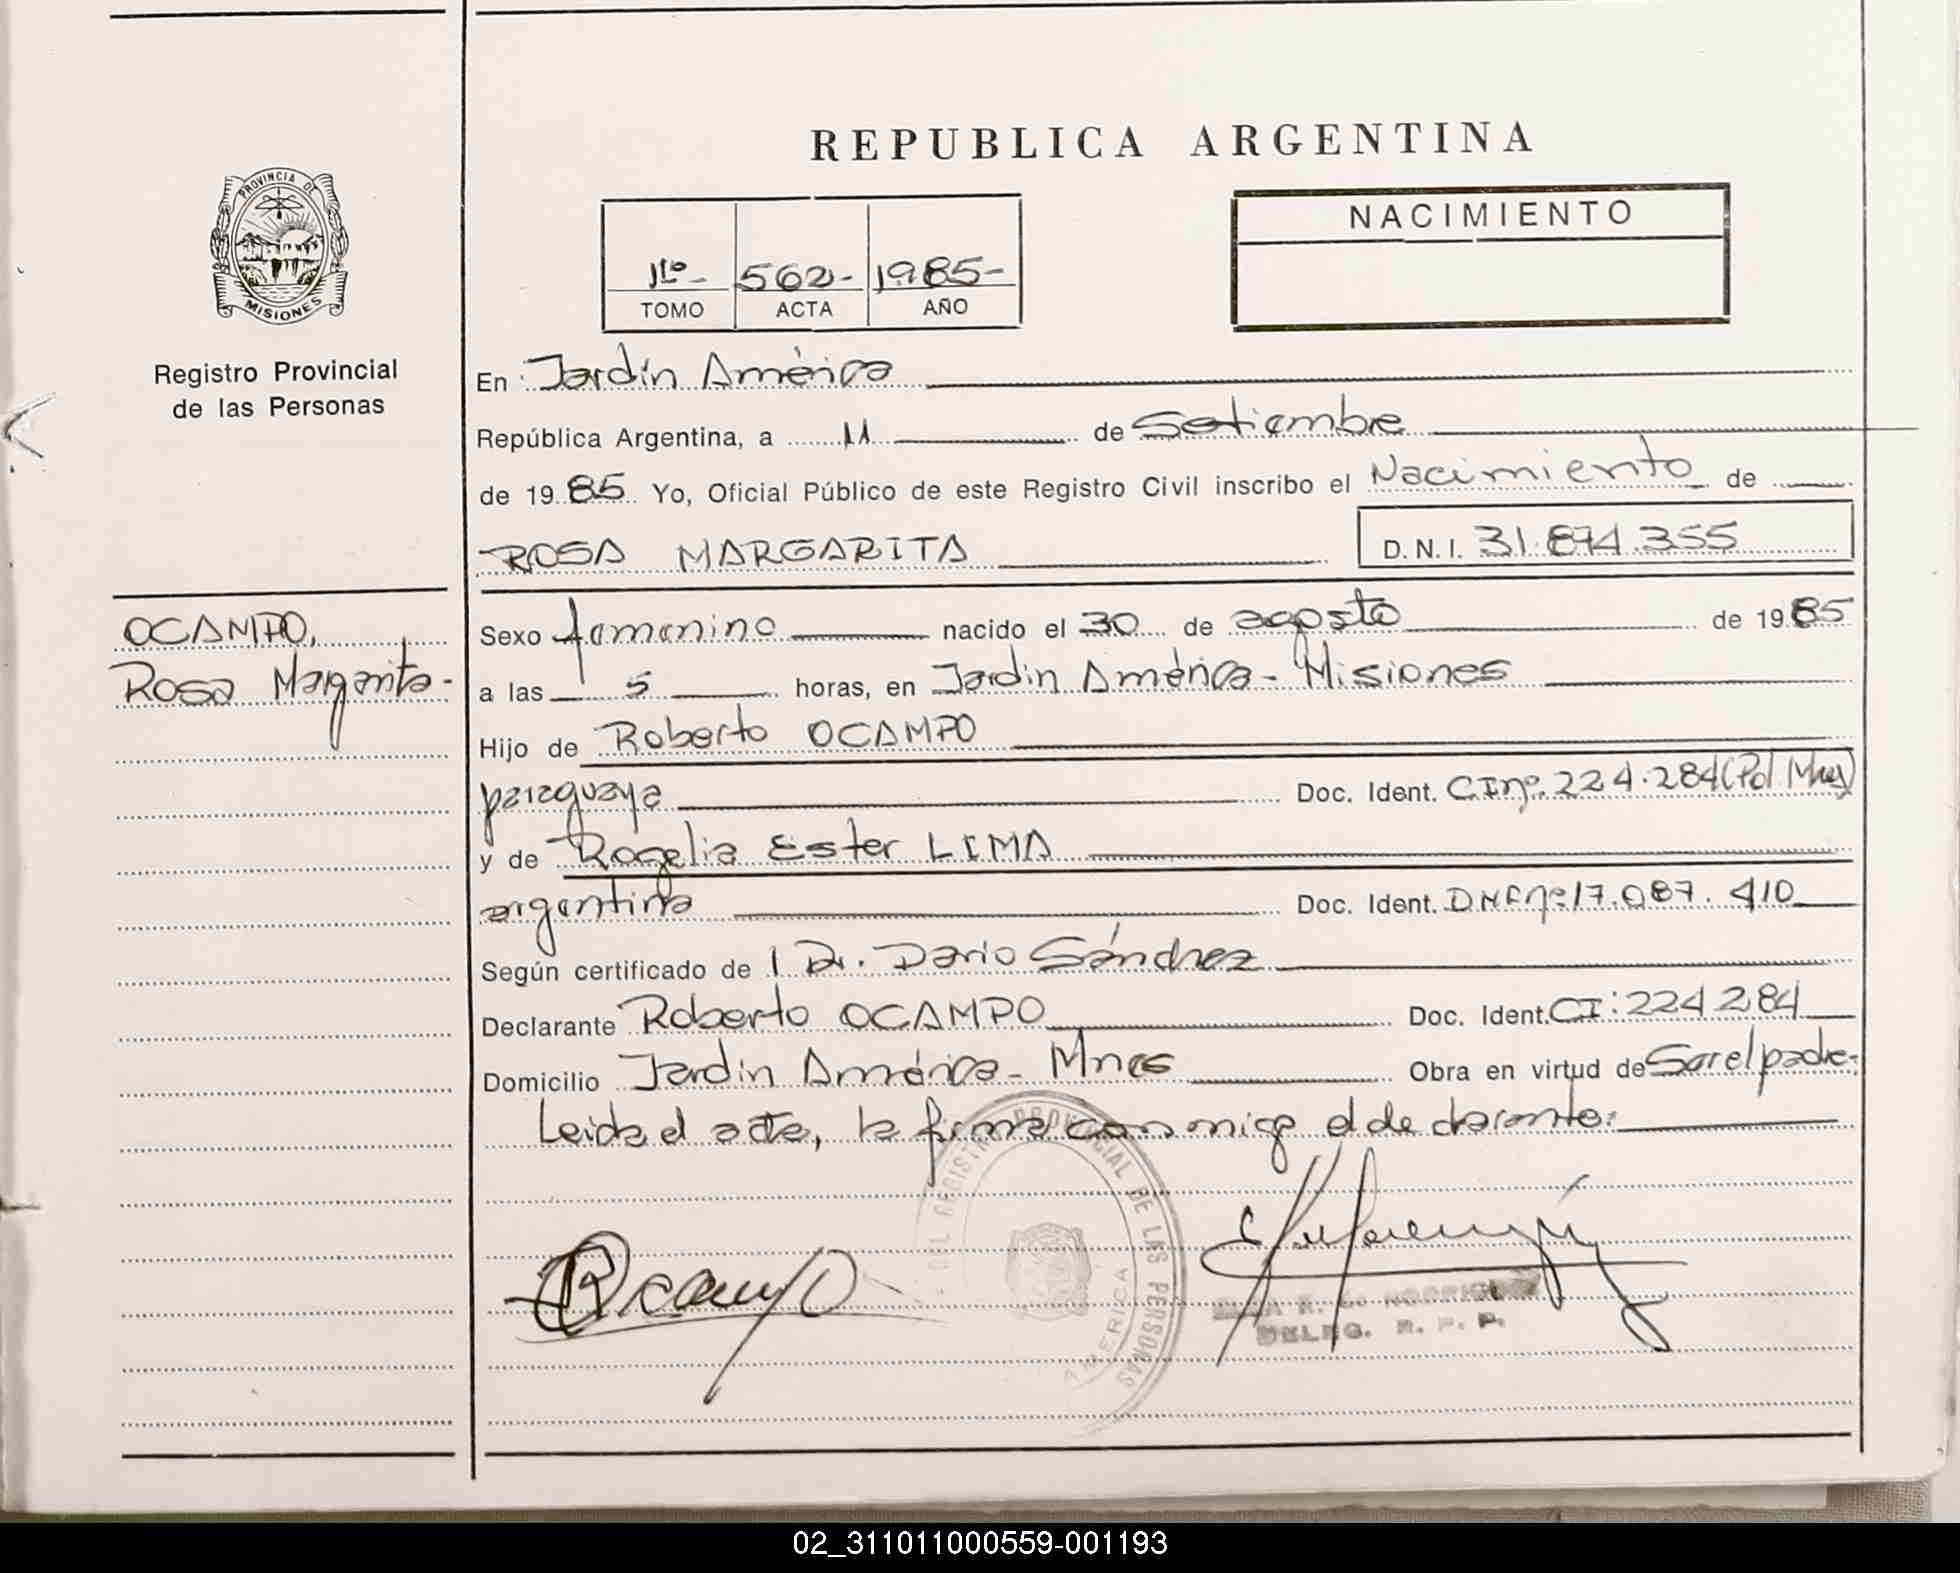 REPUBLICA ARGENTINA
PROVINCIA DE
MISIONES
Registro Provincial
de las Personas
NACIMIENTO
562- 1985-
TOMO ACTA AÑO
En Jardín América
República Argentina, a 11 de Setiembre
de 1985 Yo, Oficial Público de este Registro Civil inscribo el Nacimiento de
ROSA MARGARITA D. N. I. 31.874.355
OCAMPO,
Rosa Margarita-
Sexo femenino nacido el 30 de agosto de 1985
a las 5 horas, en Jardin América - Misiones
Hijo de Roberto OCAMPO
paraguaya Doc. Ident. CI nº. 224.284 (Pol Mnes)
y de Rogelia Ester LIMA
argentina Doc. Ident. DNI nº 17.087.410
Según certificado de Dr. Dario Sánchez
Declarante Roberto OCAMPO Doc. Ident. CI: 224 284
Domicilio Jardín América - Mnes Obra en virtud de Ser el padre-
Leida el acta, la firma conmigo el declarante:
DEL REGISTRO PROVINCIAL DE LAS PERSONAS
AMERICA
DELEG. R. P. P.
02_311011000559-001193